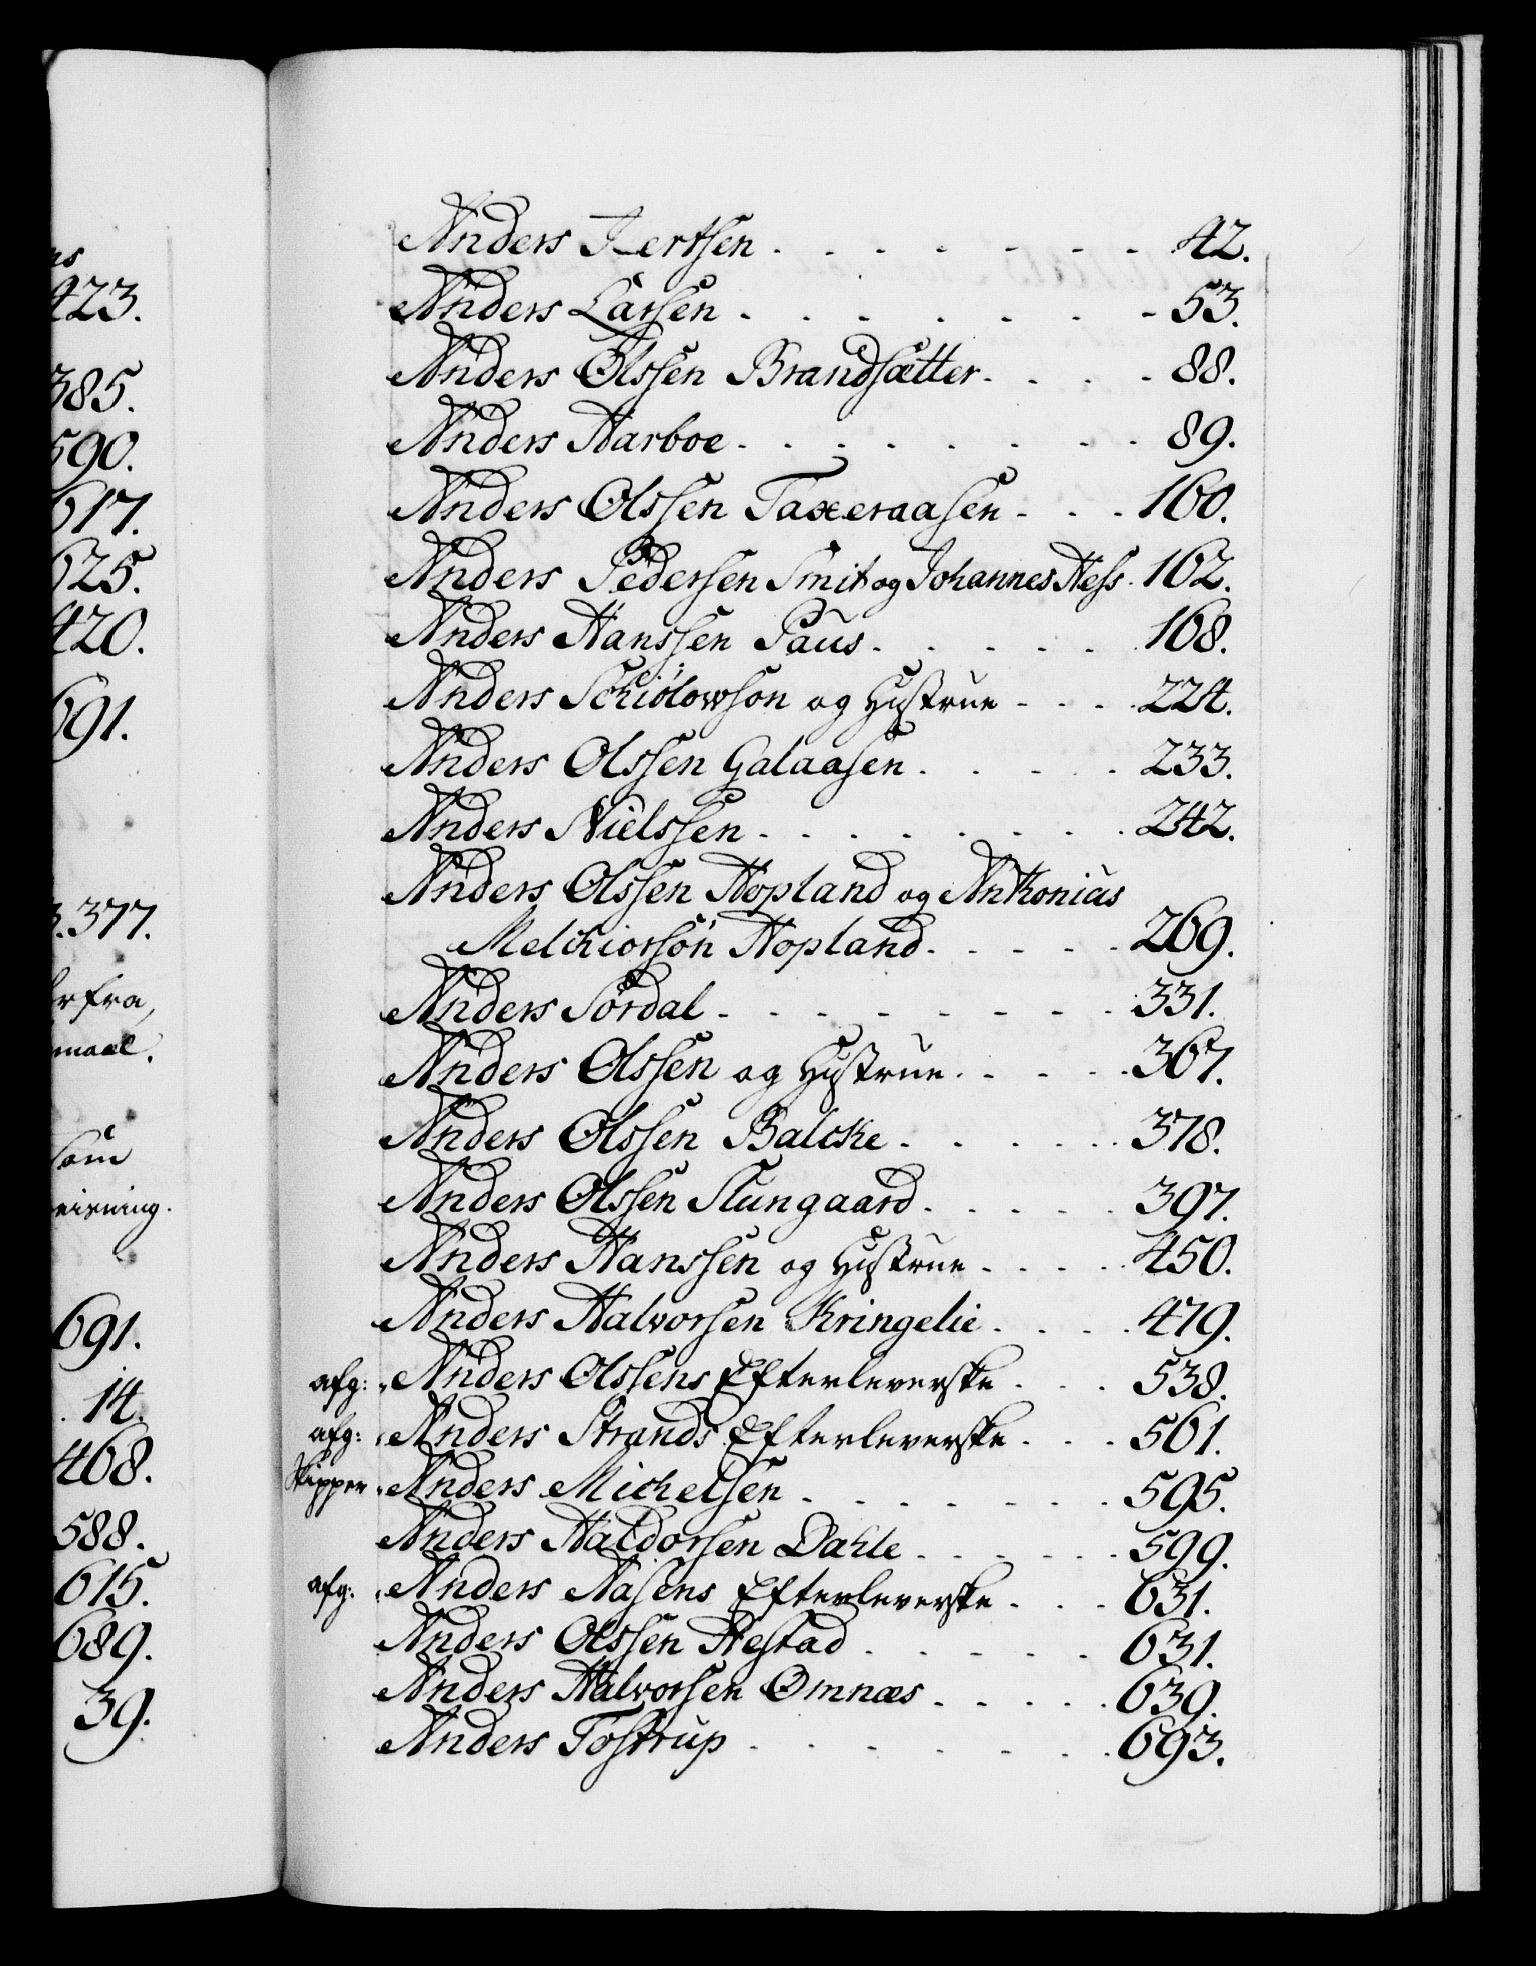 ns
423.
385.
590.
617.
625.
420.
691.
3.377.
erfra,
maal.
som
viisning.
691.
14.
468.
588.
615.
689.
39.
Anders Iertsen - - - - - - - 42.
Anders Larsen - - - - - - - 53.
Anders Olssen Brandsætter - - - - 88.
Anders Aarboe - - - - - - - 89.
Anders Olssen Taxeraasen - - - 160.
Anders Pedersen Smit og Johannes Hess 162.
Anders Hanssen Paus - - - - - 168.
Anders Schiölowson og Hustrue - - - 224.
Anders Olssen Galaasen - - - - - 233.
Anders Nielssen - - - - - - - 242.
Anders Olssen Hopland og Anthonius
Melchiorson Hopland - - - - - 269.
Anders Sördal - - - - - - - 331.
Anders Olssen og Hustrue - - - - 367.
Anders Olssen Balcke - - - - - 378.
Anders Olssen Slungaard - - - - - 397.
Anders Hanssen og Hustrue - - - - 450.
Anders Halvorsen Kringelie - - - - 479.
afg: Anders Olssens Efterleverske - - - 538.
afg: Anders Strands Efterleverske - - - 561.
Skipper Anders Michelsen - - - - - - - 595.
Anders Haldorsen Dahle - - - - - 599.
afg: Anders Aasens Efterleverske - - - 631.
Anders Olssen Hestad - - - - - 631.
Anders Halvorsen Omnæs - - - - - 639.
Anders Tostrup - - - - - - - 693.